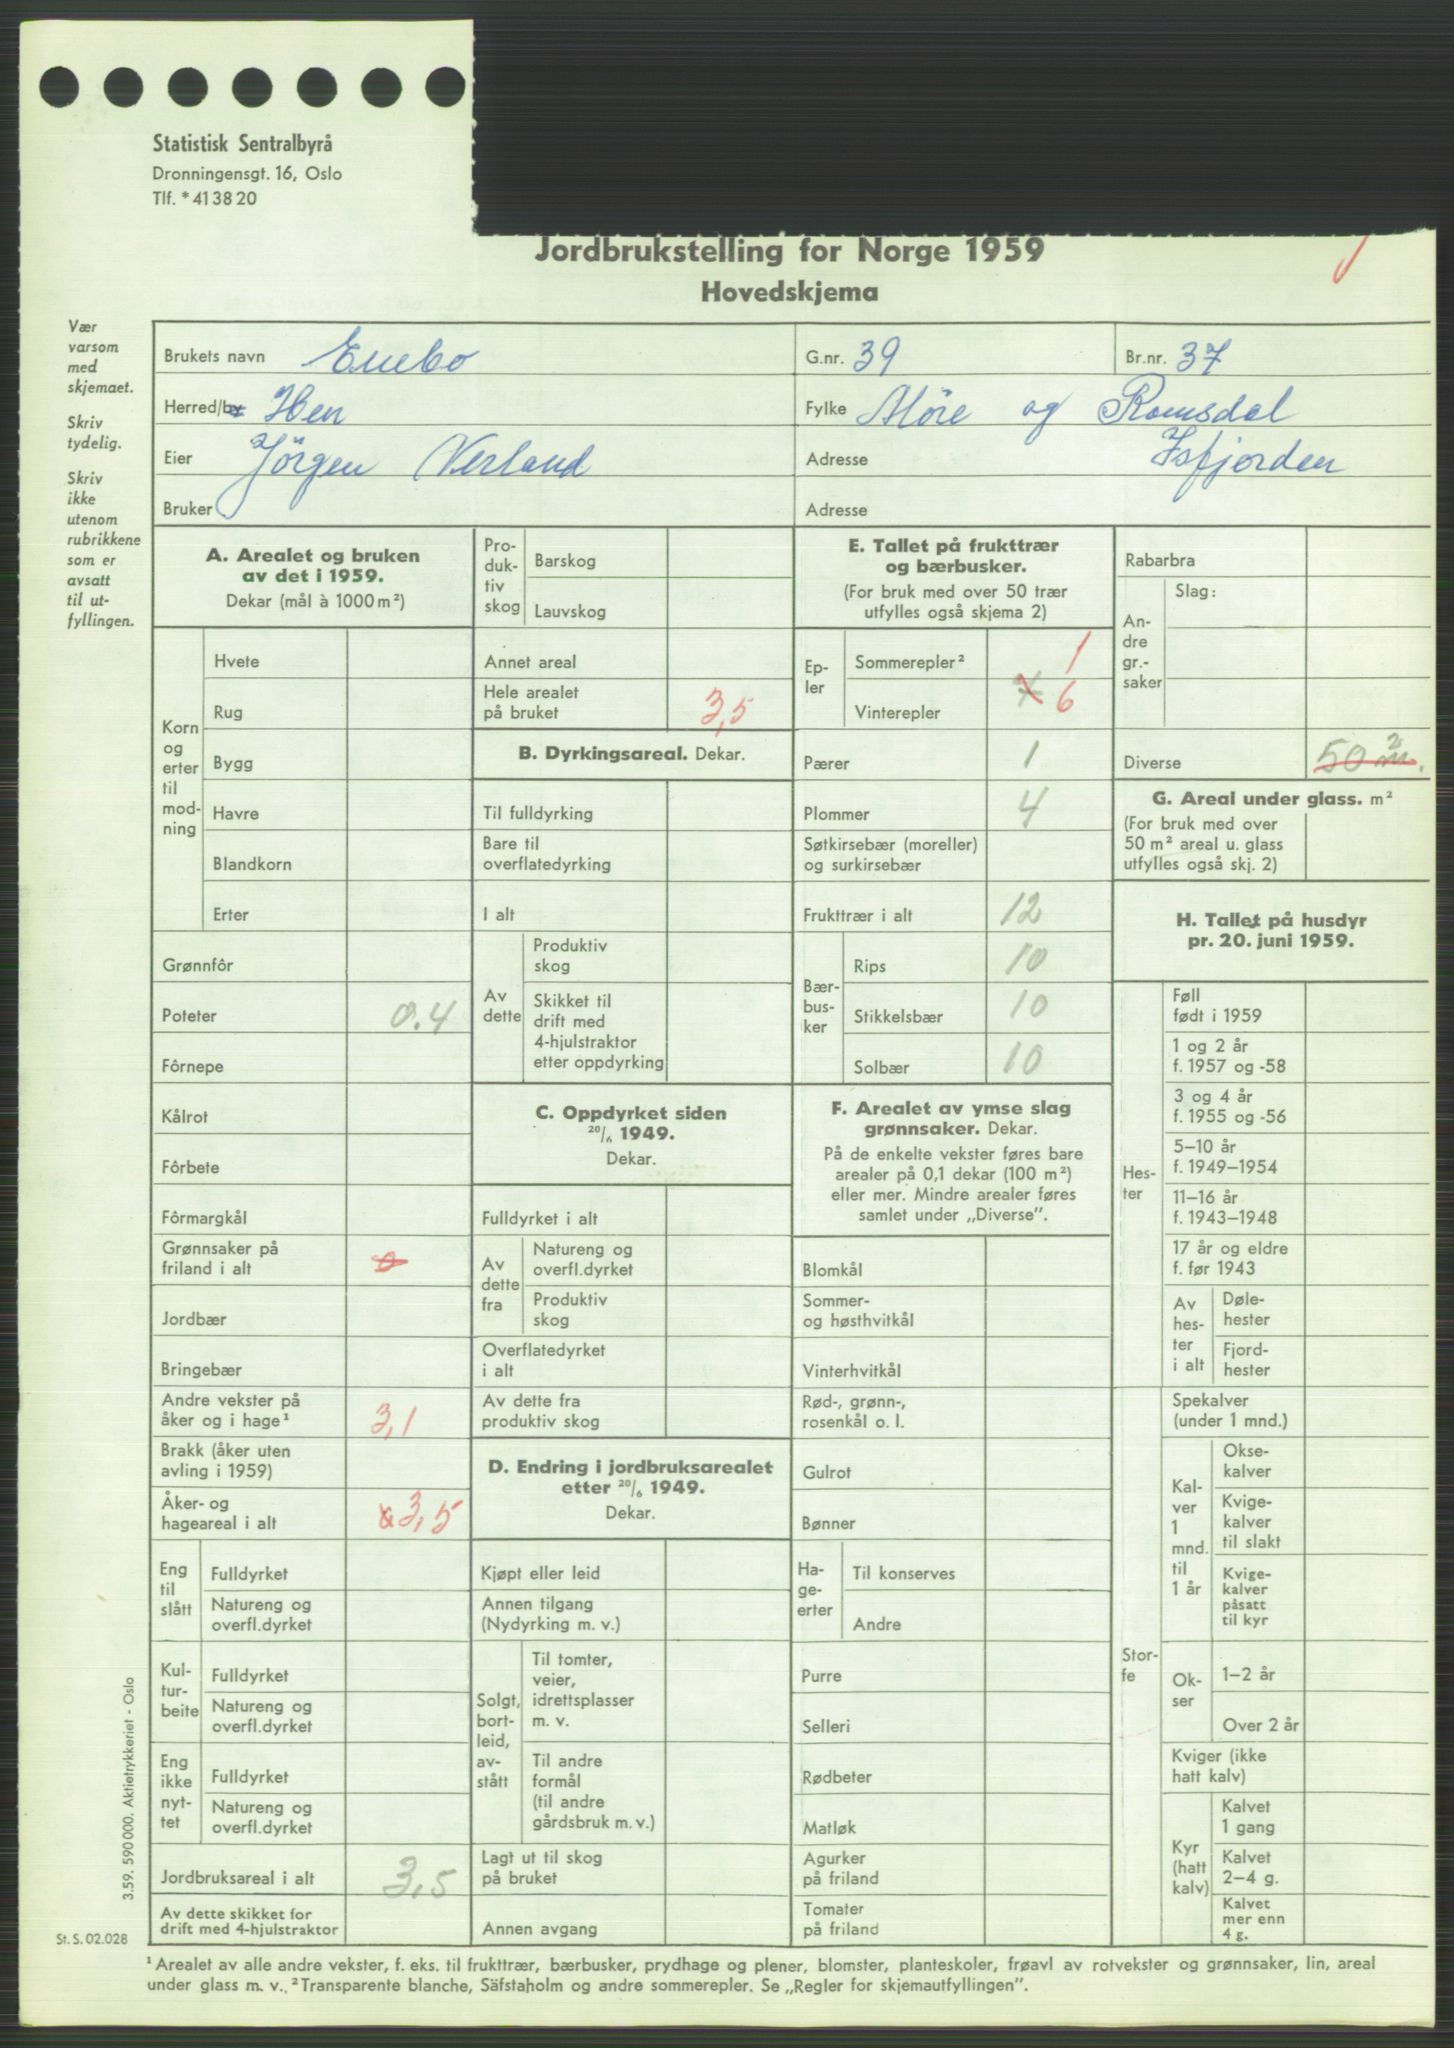 Statistisk Sentralbyrå
Dronningensgt. 16, Oslo
Tlf. * 41 38 20
Jordbrukstelling for Norge 1959
Hovedskjema
Vær
varsom
med
skjemaet.
Skriv
tydelig.
Skriv
ikke
utenom
rubrikkene
som er
avsatt
til ut-
fyllingen.
Brukets navn Enebo G.nr. 39 Br.nr. 37
Herred/by Hen Fylke Møre og Romsdal
Eier Jörgen Verland Adresse Isfjorden
Bruker Adresse
A. Arealet og bruken
av det i 1959.
Dekar (mål à 1000 m²)
Korn
og
erter
til
mod-
ning
Hvete
Rug
Bygg
Havre
Blandkorn
Erter
Grønnfôr
Poteter 0.4
Fôrnepe
Kålrot
Fôrbete
Fôrmargkål
Grønnsaker på
friland i alt 0
Jordbær
Bringebær
Andre vekster på
åker og i hage¹ 3,1
Brakk (åker uten
avling i 1959)
Åker- og
hageareal i alt 3,5
Eng
til
slått
Fulldyrket
Natureng og
overfl.dyrket
Kul-
tur-
beite
Fulldyrket
Natureng og
overfl.dyrket
Eng
ikke
nyt-
tet
Fulldyrket
Natureng og
overfl.dyrket
Jordbruksareal i alt 3,5
Av dette skikket for
drift med 4-hjulstraktor
Pro-
duk-
tiv
skog
Barskog
Lauvskog
Annet areal
Hele arealet
på bruket 3,5
B. Dyrkingsareal. Dekar.
Til fulldyrking
Bare til
overflatedyrking
I alt
Av
dette
Produktiv
skog
Skikket til
drift med
4-hjulstraktor
etter oppdyrking
C. Oppdyrket siden
20/6 1949.
Dekar.
Fulldyrket i alt
Av
dette
fra
Natureng og
overfl.dyrket
Produktiv
skog
Overflatedyrket
i alt
Av dette fra
produktiv skog
D. Endring i jordbruksarealet
etter 20/6 1949.
Dekar.
Kjøpt eller leid
Annen tilgang
(Nydyrking m. v.)
Solgt,
bort-
leid,
av-
stått
Til tomter,
veier,
idrettsplasser
m. v.
Til andre
formål
(til andre
gårdsbruk m. v.)
Lagt ut til skog
på bruket
Annen avgang
E. Tallet på frukttrær
og bærbusker.
(For bruk med over 50 trær
utfylles også skjema 2)
Ep-
ler
Sommerepler² 1
Vinterepler 7 6
Pærer 1
Plommer 4
Søtkirsebær (moreller)
og surkirsebær
Frukttrær i alt 12
Bær-
bus-
ker
Rips 10
Stikkelsbær 10
Solbær 10
F. Arealet av ymse slag
grønnsaker. Dekar.
På de enkelte vekster føres bare
arealer på 0,1 dekar (100 m²)
eller mer. Mindre arealer føres
samlet under „Diverse".
Blomkål
Sommer-
og høsthvitkål
Vinterhvitkål
Rød-, grønn-,
rosenkål o. l.
Gulrot
Bønner
Ha-
ge-
erter
Til konserves
Andre
Purre
Selleri
Rødbeter
Matløk
Agurker
på friland
Tomater
på friland
Rabarbra
An-
dre
gr.-
saker
Slag:
Diverse 50 m².
G. Areal under glass. m²
(For bruk med over
50 m² areal u. glass
utfylles også skj. 2)
H. Tallet på husdyr
pr. 20. juni 1959.
Hes-
ter
Føll
født i 1959
1 og 2 år
f. 1957 og -58
3 og 4 år
f. 1955 og -56
5–10 år
f. 1949–1954
11–16 år
f. 1943–1948
17 år og eldre
f. før 1943
Av
hes-
ter
i alt
Døle-
hester
Fjord-
hester
Stor-
fe
Spekalver
(under 1 mnd.)
Kal-
ver
1
mnd.
til
1 år
Okse-
kalver
Kvige-
kalver
til slakt
Kvige-
kalver
påsatt
til kyr
Ok-
ser
1–2 år
Over 2 år
Kviger (ikke
hatt kalv)
Kyr
(hatt
kalv)
Kalvet
1 gang
Kalvet
2–4 g.
Kalvet
mer enn
4 g.
3.59. 590 000. Aktietrykkeriet - Oslo
St. S. 02.028
¹ Arealet av alle andre vekster, f. eks. til frukttrær, bærbusker, prydhage og plener, blomster, planteskoler, frøavl av rotvekster og grønnsaker, lin, areal
under glass m. v. ² Transparente blanche, Säfstaholm og andre sommerepler. Se „Regler for skjemautfyllingen".